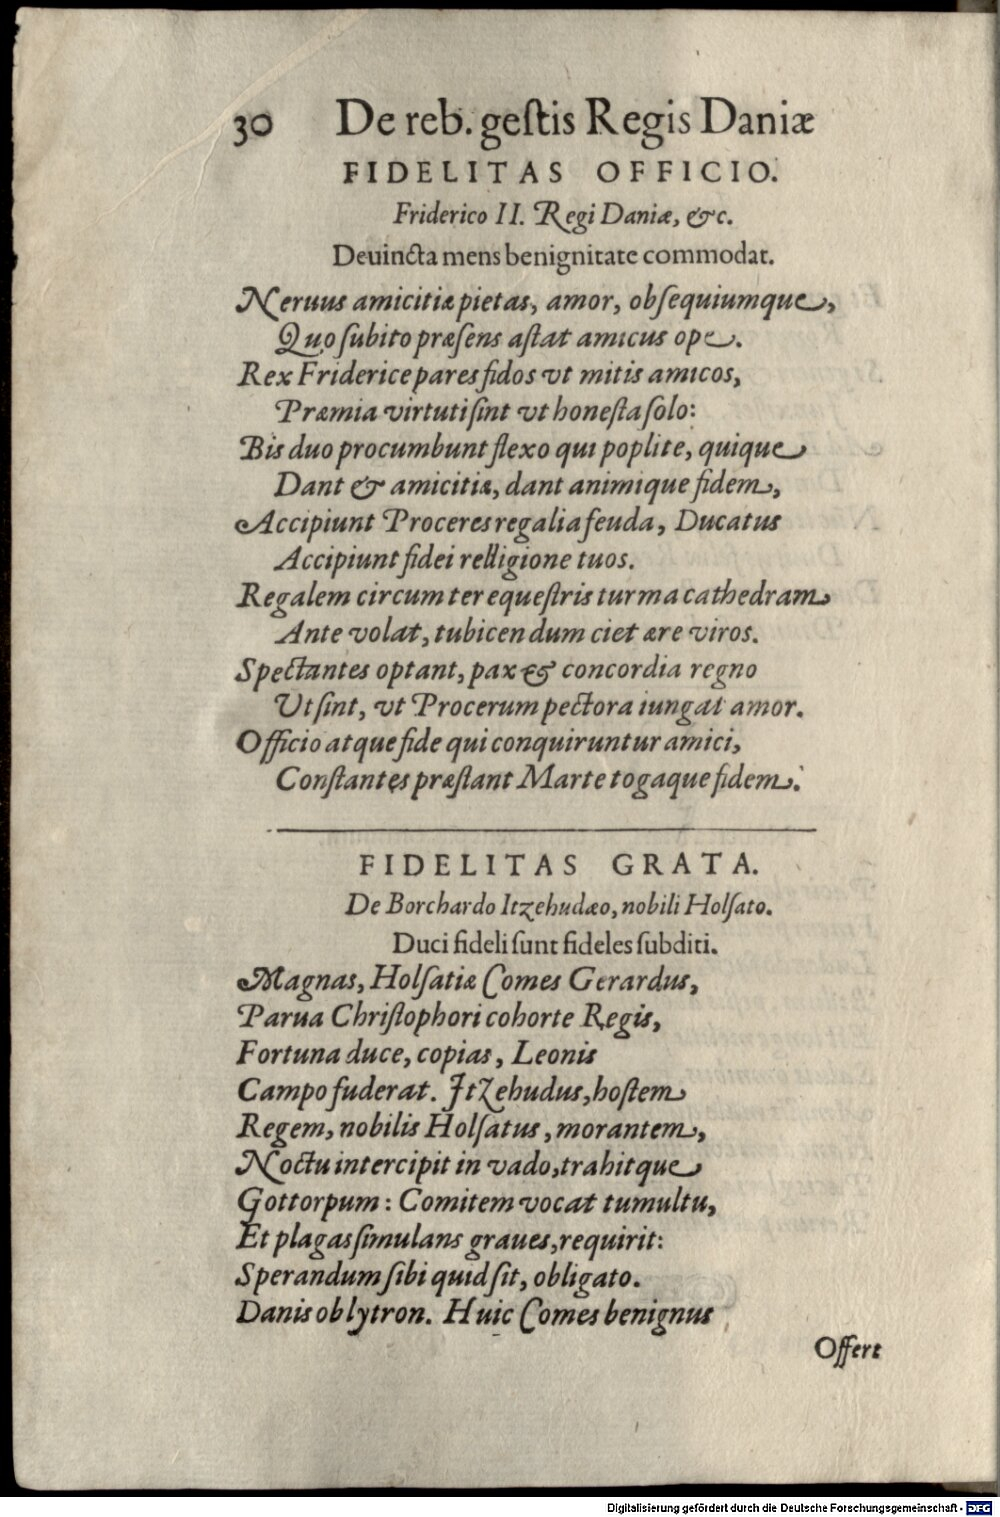 30 De reb. geſtis Regis Daniæ
FIDELITAS OFFICIO.
Friderico II. Regi Daniæ, &c.
Deuincta mens benignitate commodat.
Neruus amicitiæ pietas, amor, obſequiumque,
Quo ſubito præſens aſtat amicus ope.
Rex Friderice pares fidos vt mitis amicos,
Præmia virtuti ſint vt honeſta ſolo:
Bis duo procumbunt flexo qui poplite, quique
Dant & amicitiæ, dant animique fidem,
Accipiunt Proceres regalia feuda, Ducatus
Accipiunt fidei relligione tuos.
Regalem circum ter equeſtris turma cathedram
Ante volat, tubicen dum ciet ære viros.
Spectantes optant, pax & concordia regno
Ut ſint, vt Procerum pectora iungat amor.
Officio atque fide qui conquiruntur amici,
Conſtantes præſtant Marte togaque fidem.
FIDELITAS GRATA.
De Borchardo Itzehudæo, nobili Holſato.
Duci fideli ſunt fideles ſubditi.
Magnas, Holſatiæ Comes Gerardus,
Parua Chriſtophori cohorte Regis,
Fortuna duce, copias, Leonis
Campo fuderat. Itzehudus, hoſtem
Regem, nobilis Holſatus, morantem,
Noctu intercipit in vado, trahitque
Gottorpum: Comitem vocat tumultu,
Et plagas ſimulans graues, requirit:
Sperandum ſibi quid ſit, obligato.
Danis ob lytron. Huic Comes benignus
Offert
Digitalisierung gefördert durch die Deutsche Forschungsgemeinschaft - DFG